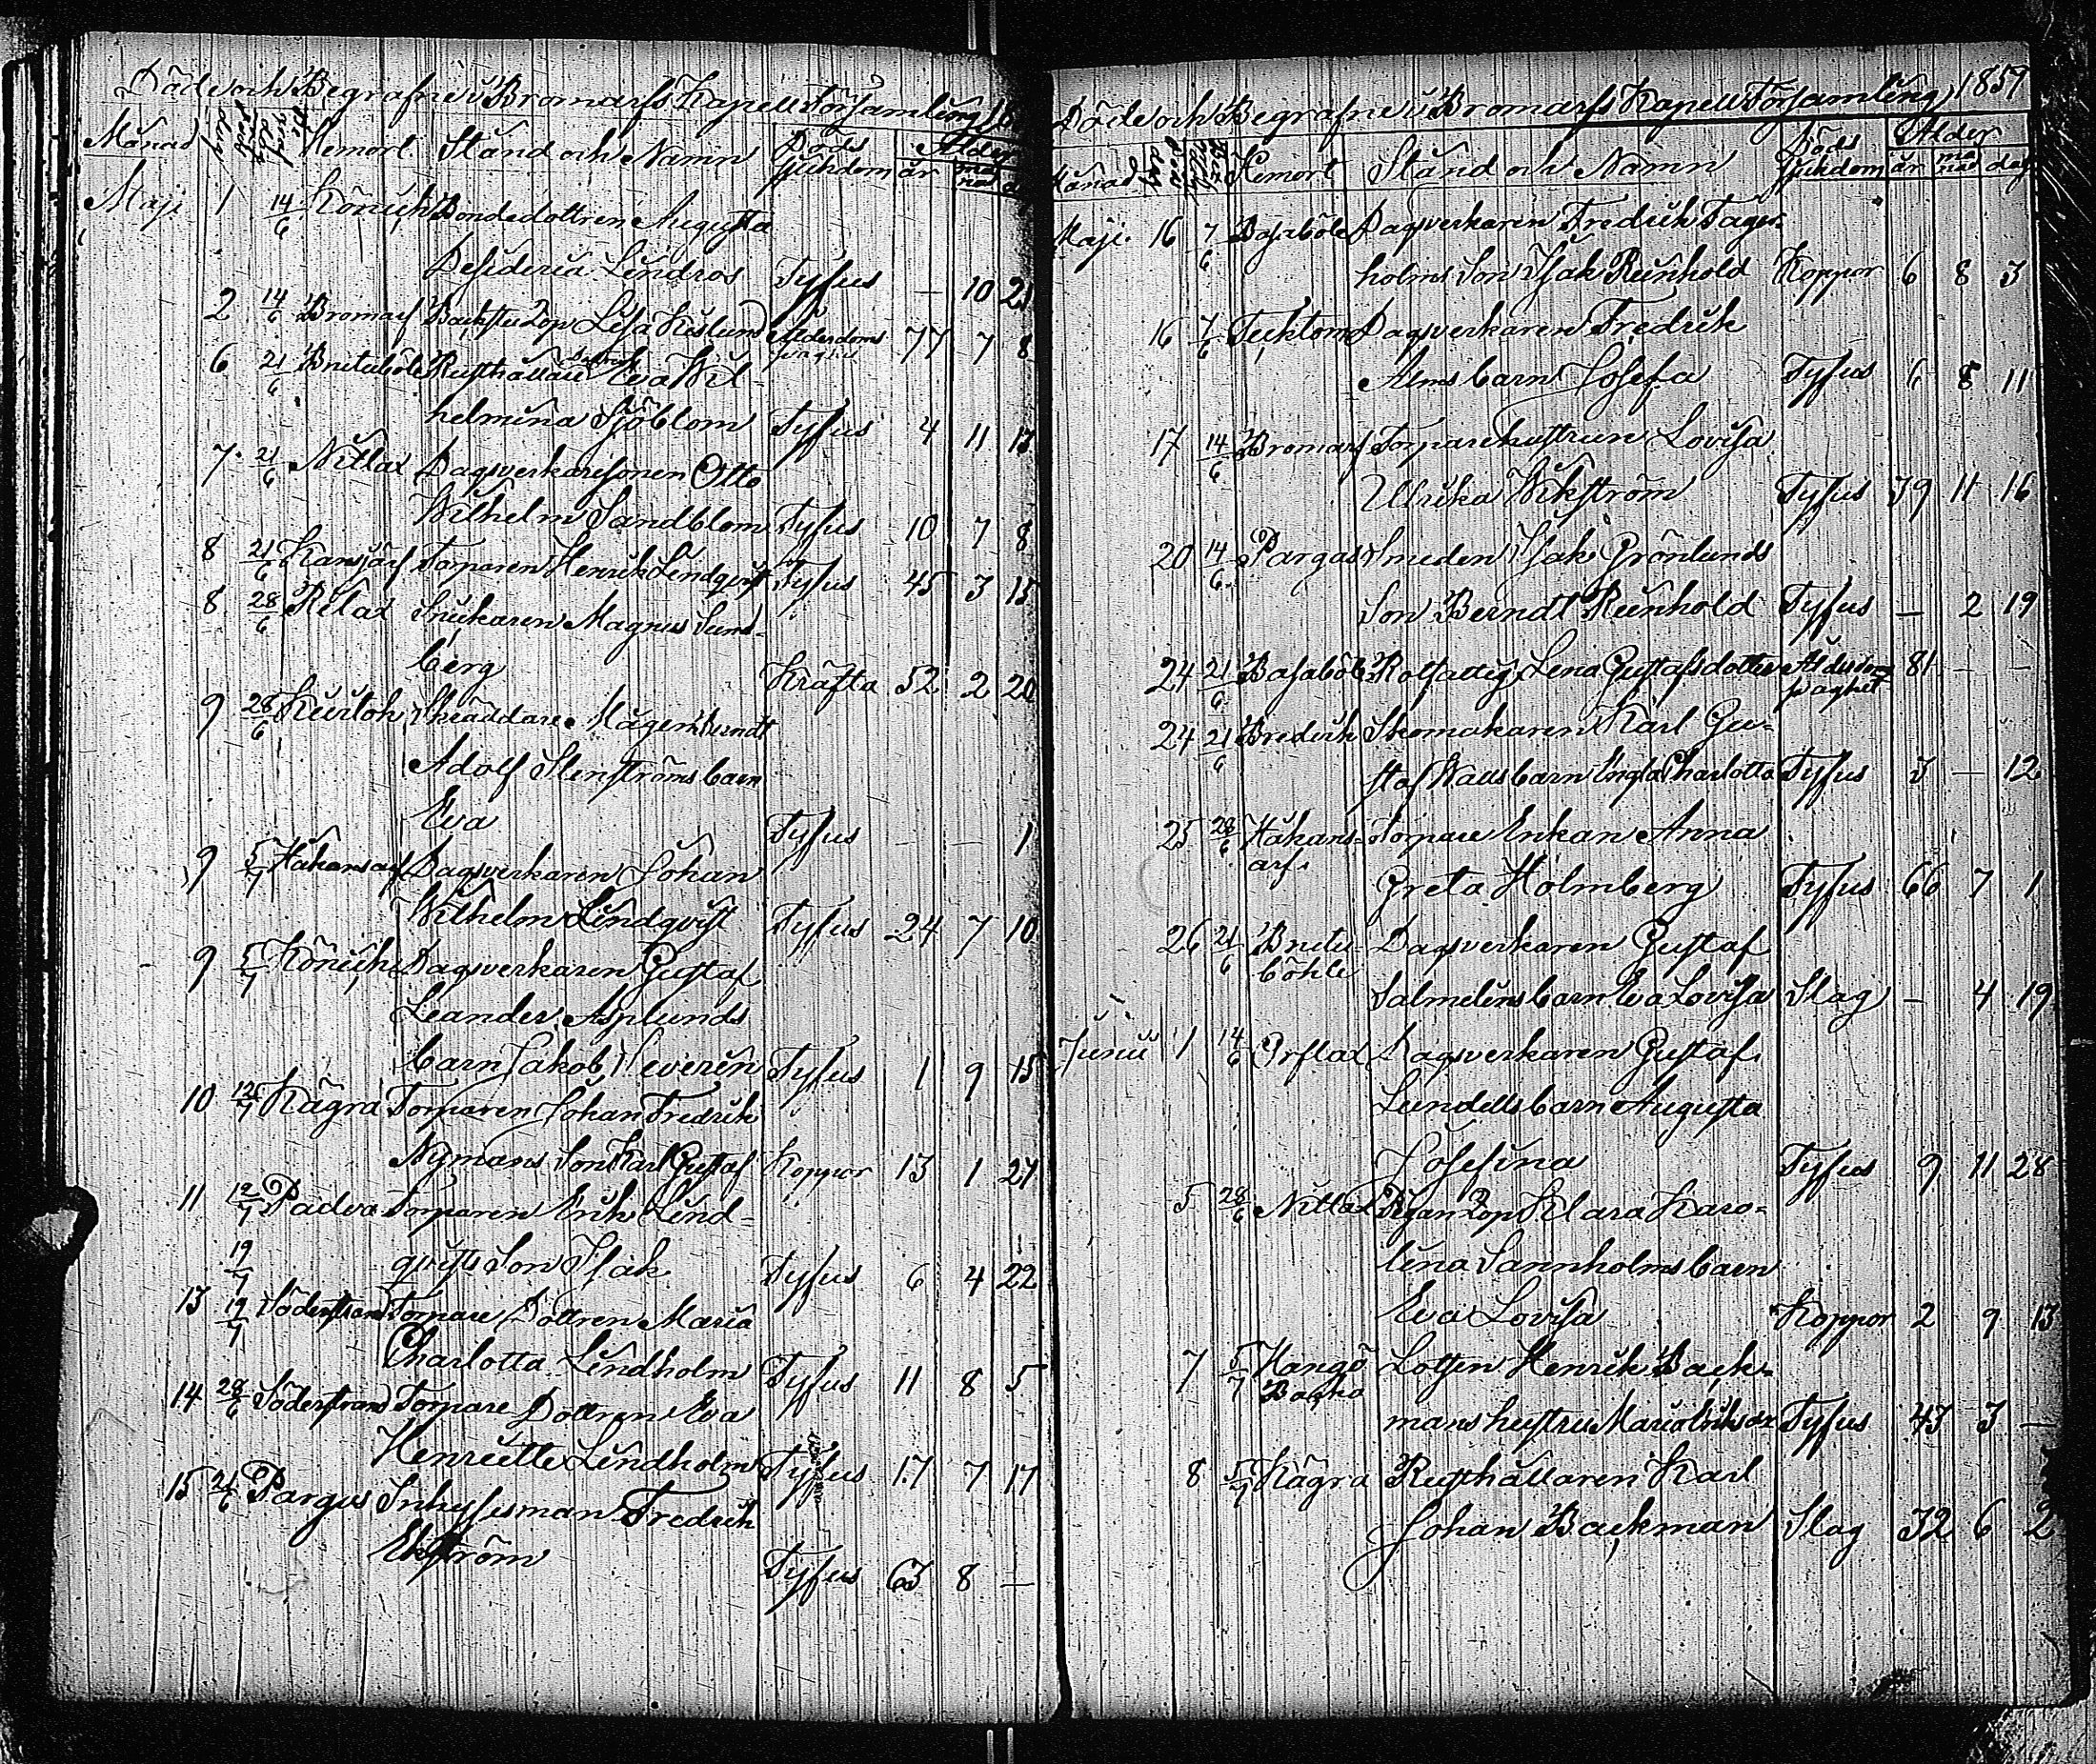 Döde och Begrafne i Bromarfs Kapell Församling
Månad dag Hemort Stånd och Namn Döds sjukdom Ålder år månad
Maji 1 14/6 Könich Bondedottren Augusta
Desideria Lindros Tyfus — 10 21
2 14/6 Bromarf Lisa Ålderdoms 77 7 8
6 21/6 Britaböle Rusthållare dottren Eva Wil-
helmina Sjöblom Tyfus 4 11 17
7 21/6 Nitlax Dagsverkaresonen Otto
Wilhelm Sandblom Tyfus 10 7 8
8 21/6 Kansjärf Torparen Henrik Lindqvist Tyfus 45 3 15
8 28/6 Rilax Snickaren Magnus Sund-
berg Kräfta 52 2 20
9 28/6 Skräddare Berndt
Adolf Stenströms barn
Eva Tyfus — — 1
9 5/7 Håkansarf Dagsverkaren Johan
Wilhelm Lindqvist Tyfus 24 7 10
9 5/7 Dagsverkaren Gustaf
Leander Asplunds
barn Jakob Severin Tyfus 1 9 15
10 12/7 Kägra Torparen Johan Fredrik
Nymans Son Karl Gustaf Koppor 13 1 27
11 12/7 Padva Torparen Erik Lind-
19/7 qvists Son Isak Tyfus 6 4 22
13 19/7 Söderstrand Torpare Dottren Maria
Charlotta Lindholm Tyfus 11 8 5
14 28/6 Söderstrand Torpare Dottren Eva
Henriette Lindholm Tyfus 17 7 17
15 21/6 Pargas Inhysesman Fredrik
Ekström Tyfus 63 8 —
Döde och Begrafne i Bromarfs Kapell Församling 1859
Månad dag Hemort Stånd och Namn Döds sjukdom Ålder år månad dag
Maji 16 7/6 Basaböle Dagsverkaren Fredrik Fager-
holms Son Isak Reinhold Koppor 6 8 3
16 7/6 Täcktom Dagsverkaren Fredrik
Alms barn Josefa Tyfus 6 8 11
17 14/6 Bromarf Torparehustrun Lovisa
Ulrika Wikström Tyfus 39 11 16
20 14/6 Pargas Smeden Isak Grönlunds
Son Berndt Reinhold Tyfus — 2 19
24 21/6 Basaböle Rotfattig Lena Gustafsdotter Ålderdoms 81 — —
24 21/6 Bredvik Skomakaren Karl Gu-
staf Walls barn Ingla Charlotta Tyfus 3 — 12
25 28/6 Håkans- Torpare Enkan Anna
arf. Greta Holmberg Tyfus 66 7 1
26 21/6 Brita- Dagsverkaren Gustaf
böhle Salmelins barn Eva Lovisa Slag — 4 19
Junii 1 14/6 Orflax Dagsverkaren Gustaf
Lundells barn Augusta
Josefina Tyfus 9 11 28
5 28/6 Nitlax Pigan Klara Karo-
lina Sannholms barn
Eva Lovisa Koppor 2 9 13
7 5/7 Hangö Lotsen Henrik Back-
Backa mans hustru Maria Tyfus 43 3 —
8 5/7 Kägra Rusthållaren Karl
Johan Backman Slag 32 6 2